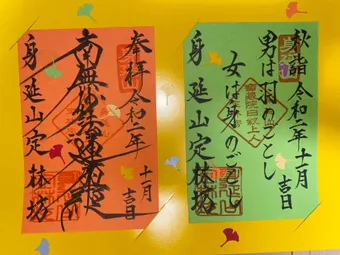 秋詣 令和二年
十一月吉日
男は羽のごとし
女は身のごとし
身延山定林坊
奉拝 令和二年
十一月吉日
南無妙法蓮華経
身延山定林坊